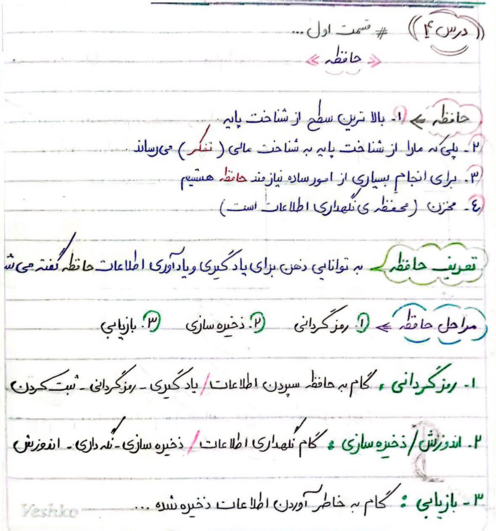 ((درس ۴)) # قسمت اول ...
« حافظه »
حافظه ← ۱- بالا ترین سطح از شناخت پایه
۲- پلی که ما را از شناخت پایه به شناخت عالی (تفکر) می‌رساند
۳- برای انجام بسیاری از امور ساده نیازمند حافظه هستیم
۴- مخزن (محفظه ی نگهداری اطلاعات است)
تعریف حافظه ← به توانایی ذهن برای یادگیری و یادآوری اطلاعات حافظه گفته می‌ش
مراحل حافظه ← ۱. رمزگردانی ۲. ذخیره سازی ۳. بازیابی
۱- رمزگردانی : گام به حافظه سپردن اطلاعات / یادگیری - رمزگردانی - ثبت کردن
۲- اندوزش / ذخیره سازی : گام نگهداری اطلاعات / ذخیره سازی - نگه داری - اندوزش
۳- بازیابی : گام به خاطر آوردن اطلاعات ذخیره شده ...
Veshko